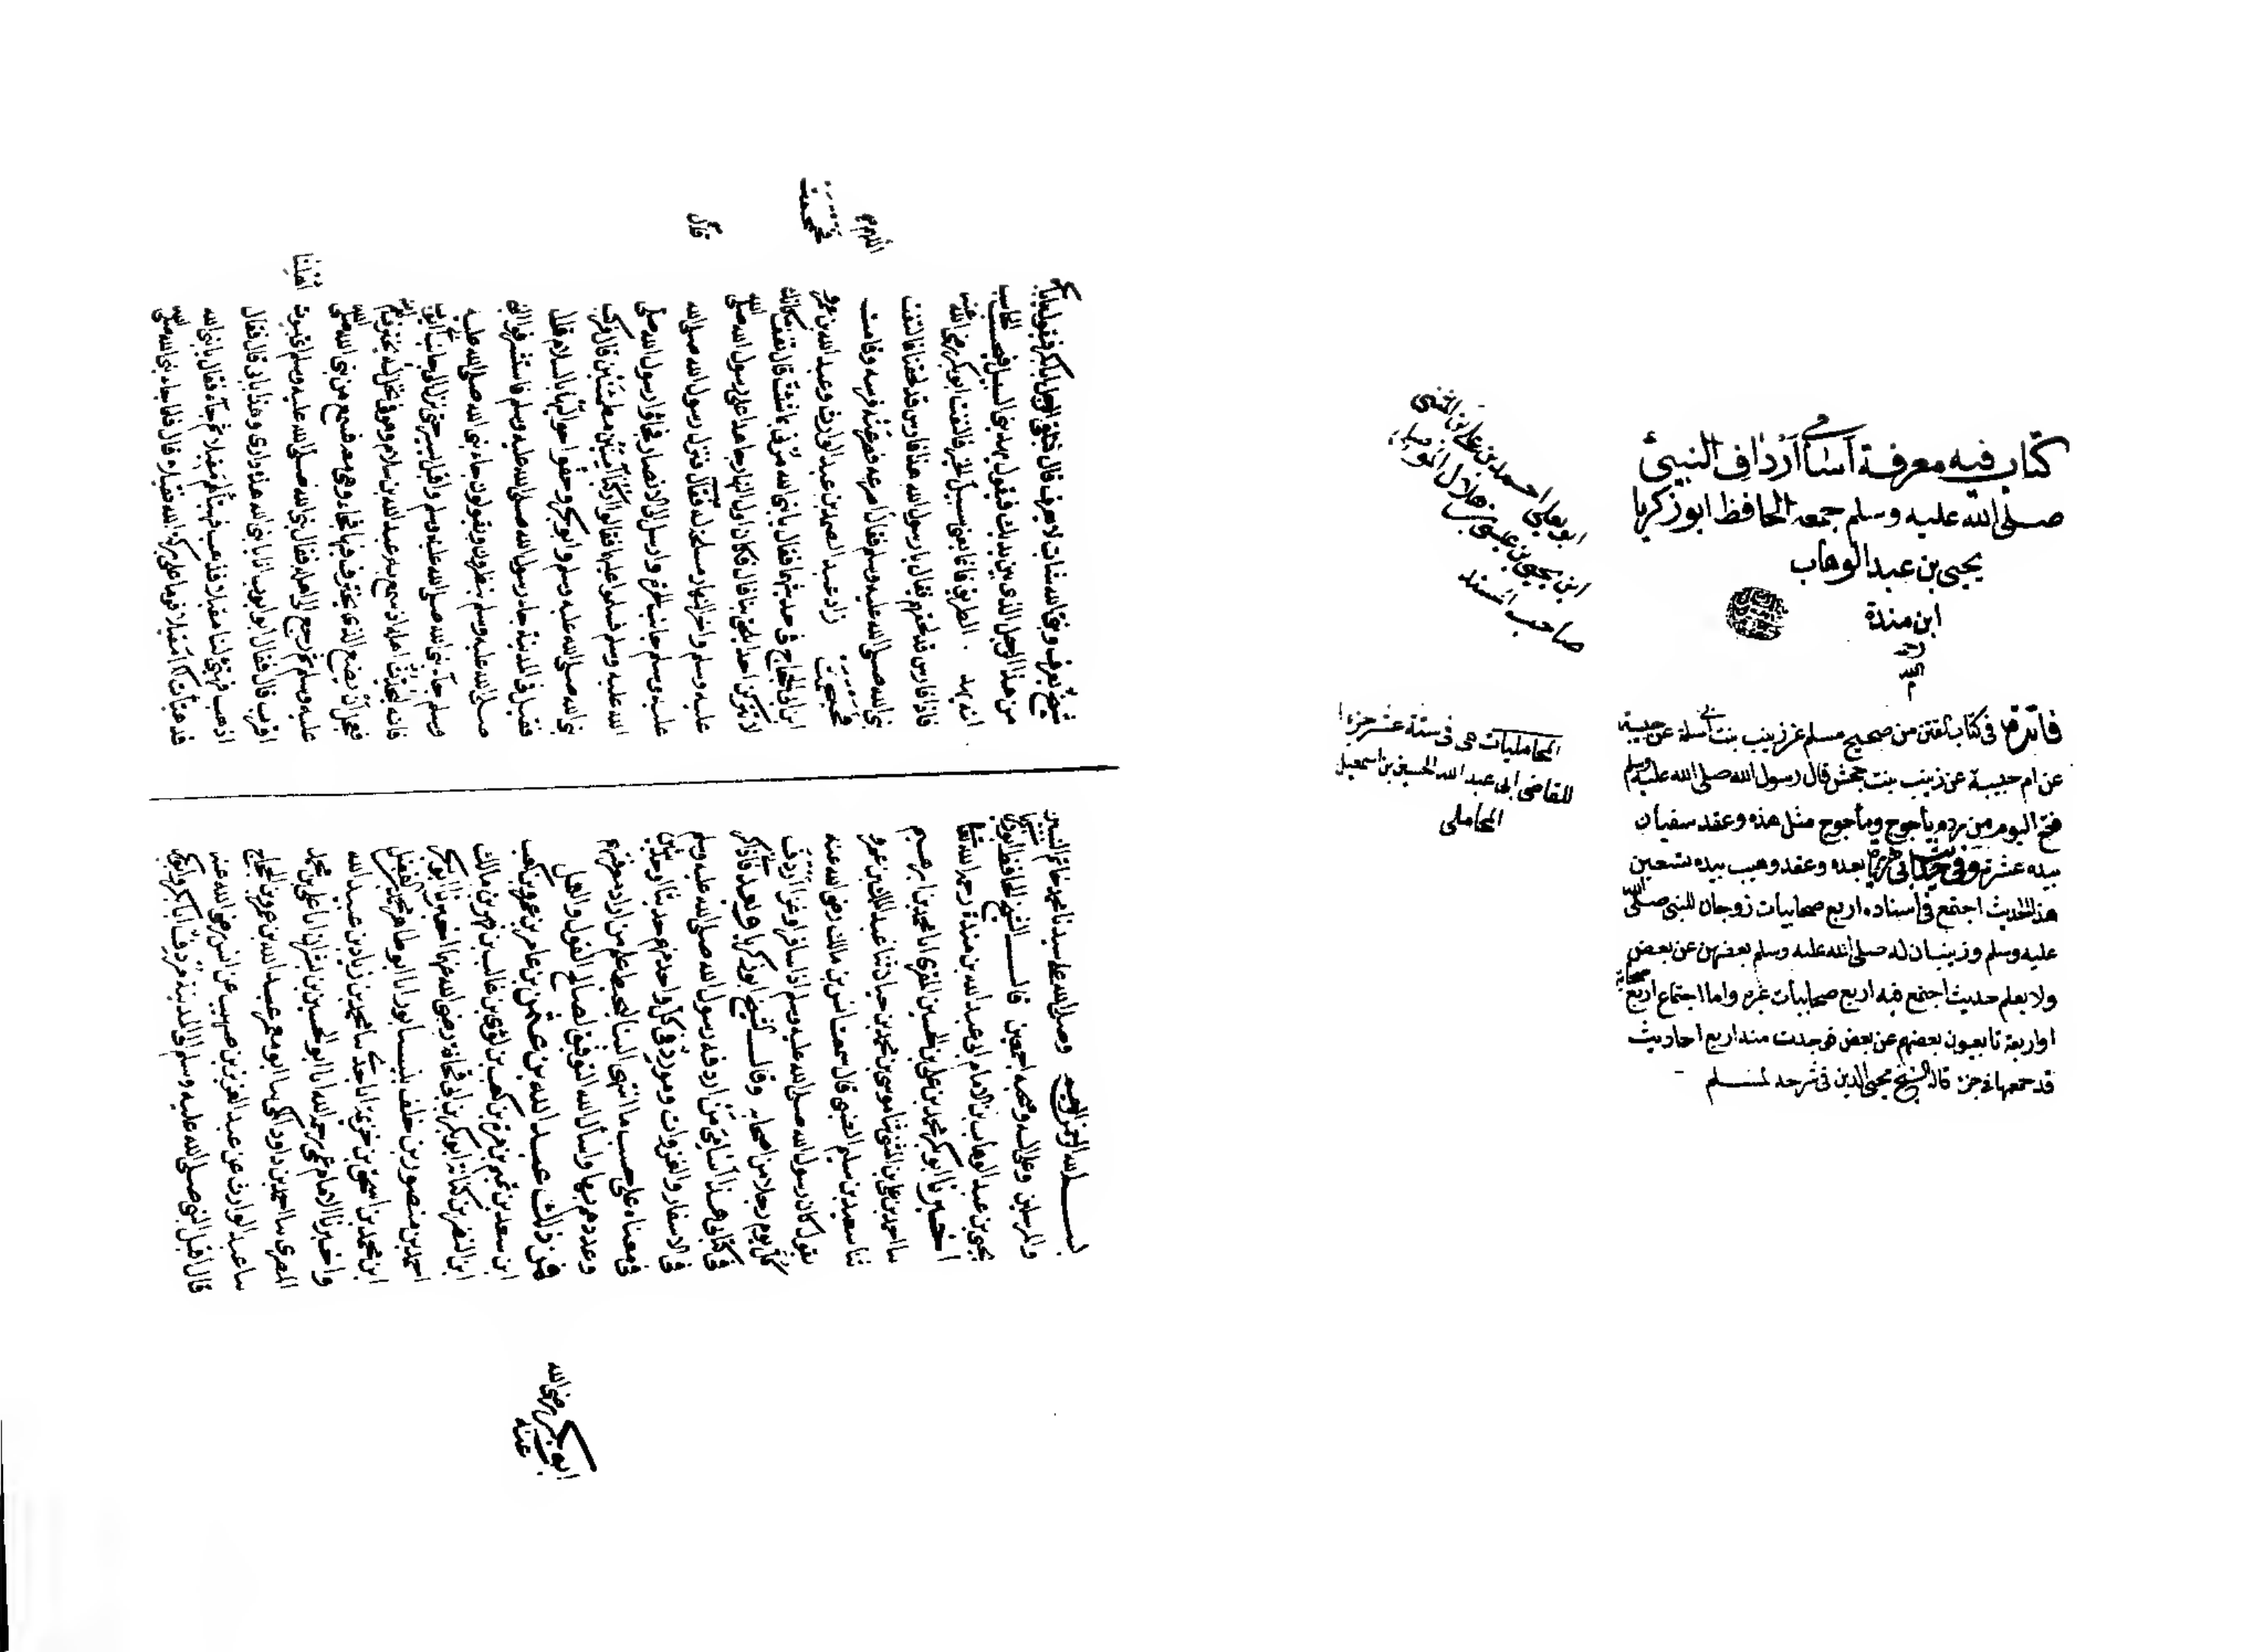 كتاب فيه معرفة أسامي أرداف النبي
صلى الله عليه وسلم جمعه الحافظ ابو زكريا
يحيى بن عبد الوهاب
ابن مندة
ابو يعلى احمد بن علي بن المثنى
ابن يحيى بن عيسى بن هلال الموصلي
صاحب المسند
فائدة في كتاب الفتن من صحيح مسلم عن زينب بنت ام سلمة عن حبيبة
عن ام حبيبة عن زينب بنت جحش قال رسول الله صلى الله عليه وسلم
فتح اليوم من ردم يأجوج ومأجوج مثل هذه وعقد سفيان
بيده عشرة وفي حديث ابي هريرة بعده وعقد وهيب بيده تسعين
هذا الحديث اجتمع في اسناده اربع صحابيات زوجتان للنبي صلى الله
عليه وسلم وربيبتان له صلى الله عليه وسلم بعضهن عن بعض
ولا يعلم حديث اجتمع فيه اربع صحابيات غيره واما اجتماع اربعة صحابة
او اربعة تابعيون بعضهم عن بعض فوجدت منه اربع احاديث
قد جمعها في جزء قاله الشيخ محيي الدين في شرحه لمسلم
المحامليات هي في ستة عشر جزءا
للقاضي ابي عبد الله الحسين بن اسمعيل
المحاملي
بسم الله الرحمن الرحيم وصلى الله على سيدنا محمد خاتم النبيين
والمرسلين وعلى اله وصحبه اجمعين قال الشيخ الحافظ ابو زكريا
يحيى بن عبد الوهاب بن الامام ابي عبد الله بن مندة رحمه الله تعالى
اخبرنا ابو بكر محمد بن علي بن الحسين المقرئ انا محمد بن ابرهيم
سا احمد بن علي بن المثنى ثنا موسى بن محمد بن حيان ثنا عبد الملك بن عمرو
ثنا سعيد بن سليم الضبي قال سمعت انس بن مالك رضي الله عنه
يقول كان رسول الله صلى الله عليه وسلم اذا سافر او غزا اردف
كل يوم رجلا من اصحابه وقال الشيخ ابو زكريا وبعد فاذكر
في كتابي هذا اسامي من اردفه رسول الله صلى الله عليه وسلم
في الاسفار والغزوات ومورد في كل واحد منهم حديثا او حديثين
في معناه على حسب ما انتهى الينا ليحيط علم من اراد معرفتهم
وعددهم بها واسأل الله التوفيق لصالح القول والعمل
فمن ذلك عبد الله بن عثمن بن عامر بن عمرو بن كعب
ابن سعد بن تيم بن مرة بن كعب بن لؤي بن غالب بن فهر بن مالك
ابن النضر بن كنانة ابو بكر بن ابي قحافة رضي الله عنهما اخبرنا ابو بكر
احمد بن منصور بن خلف بنيسابور انا ابو طاهر محمد بن الفضل
ابن محمد بن اسحق بن خزيمة انا جدي سا محمد بن زياد بن عبيد الله
واخبرنا الامام عمي رحمه الله انا ابو الحسين بن انا علي بن محمد
المصري سا احمد بن داود المكي سا ابو معمر عبد الله بن عمرو بن الحجاج
سا عبد الوارث عن عبد العزيز بن صهيب عن انس رضي الله عنه
قال اقبل النبي صلى الله عليه وسلم الى المدينة مردف ابا بكر وابو بكر
ابو بكر رضي الله
عنه
شيخ يعرف ونبي الله شاب لا يعرف قال فيلقى الرجل ابا بكر فيقول يا ابا بكر
من هذا الرجل الذي بين يديك فيقول يهديني السبيل فيحسب الحاسب
انه يهديه الطريق وانما يعني سبيل الخير فالتفت ابو بكر رضي الله عنه
فاذا فارس قد لحقهم فقال يا رسول الله هذا فارس قد لحقنا فالتفت
نبي الله صلى الله عليه وسلم فقال اصرعه فصرعته فرسه وقامت
تحمحمت زاد عبد الصمد بن عبد الوارث وعبد الله بن عمرو
ابن ابي الحجاج في حديثهما فقال يا نبي الله مرني بما شئت قال تقف مكانك
لا تتركن احدا يلحق بنا قال فكان اول النهار جاهدا على رسول الله صلى الله
عليه وسلم واخر النهار مسلحة له فقال فنزل رسول الله صلى الله
عليه وسلم جانب الحرة وارسل الى الانصار فجاؤا رسول الله صلى
الله عليه وسلم فسلموا عليهما فقالوا اركبا آمنين مطمئنين قال فركب
نبي الله صلى الله عليه وسلم وابو بكر وحفوا حولهما بالسلاح فقال
فقيل في المدينة جاء رسول الله صلى الله عليه وسلم فاستشرفوا نبي الله
صلى الله عليه وسلم ينظرون ويقولون جاء نبي الله صلى الله عليه
وسلم جاء نبي الله صلى الله عليه وسلم واقبل يسير حتى نزل الى جانب دار ابي ايوب
فانه ليحدث اهله اذ سمع به عبد الله بن سلام وهو في نخل لاهله يخترف لهم
فعجل ان يضع الذي يخترف فيها فجاء وهي معه فسمع من نبي الله صلى الله
عليه وسلم ثم رجع الى اهله فقال نبي الله صلى الله عليه وسلم اي بيوت اهلنا
اقرب قال فقال ابو ايوب انا يا نبي الله هذه داري وهذا بابي قال فقال
اذهب فهيئ لنا مقيلا فذهب فهيأ لهم مقيلا ثم جاء فقال يا نبي الله
قد هيأت لكما مقيلا قوما على بركة الله فقيلا قال فلما جاء نبي الله صلى الله